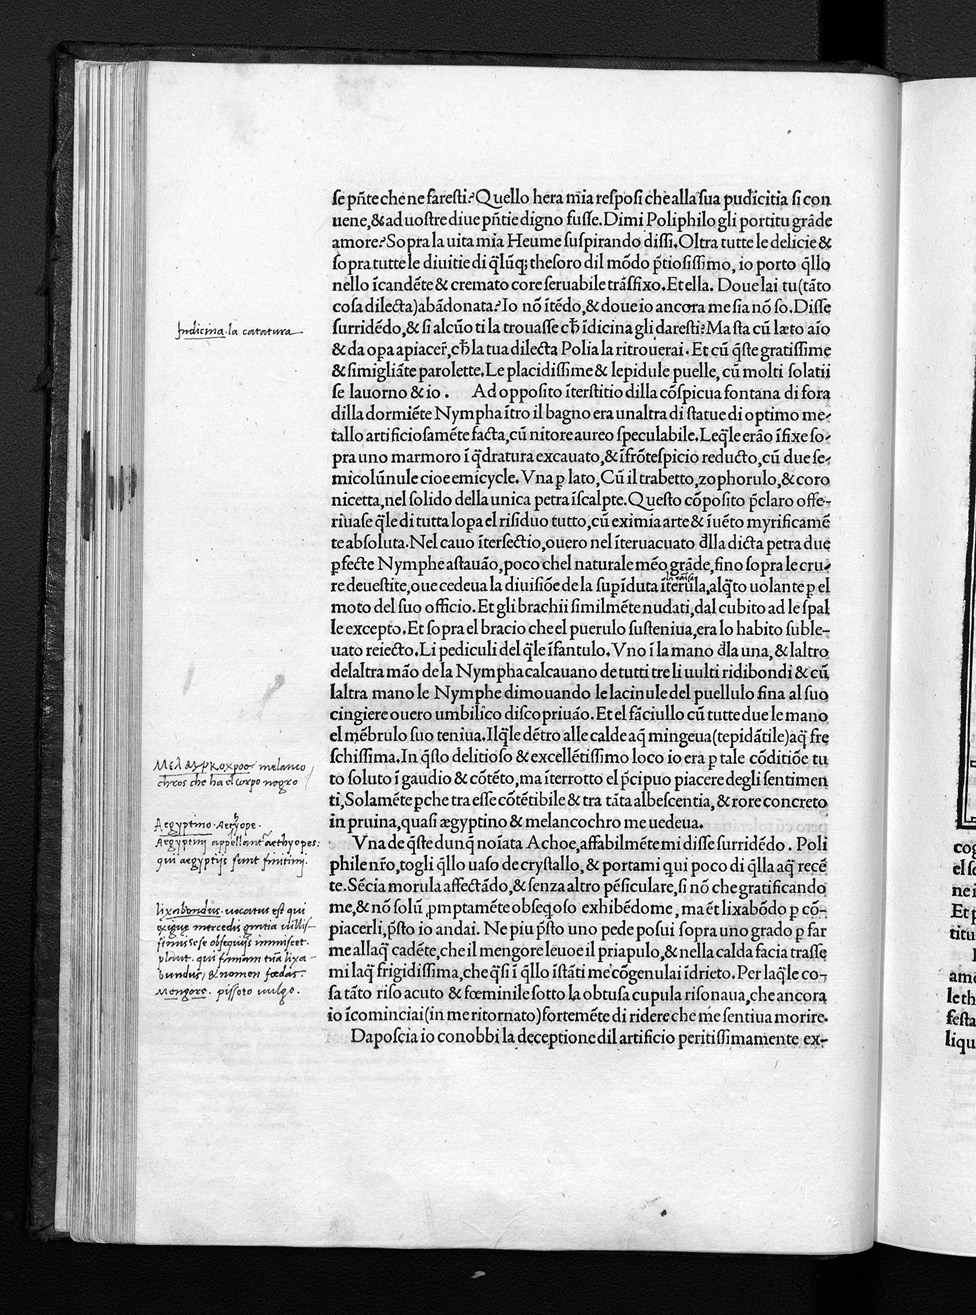 se pñte che ne faresti? Quello hera mia resposi che alla sua pudicitia si con
uene, & ad uostre diue pñtie digno fusse. Dimi Poliphilo gli portitu grãde
amore? Sopra la uita mia Heume suspirando dissi. Oltra tutte le delicie &
sopra tutte le diuitie di q̃lũq; thesoro dil mõdo p̃tiosissimo, io porto q̃llo
nello ĩcandẽte & cremato core seruabile trãsfixo. Et ella. Doue lai tu (tãto
cosa dilecta) abãdonata? Io nõ ĩtẽdo, & doue io ancora me sia nõ so. Disse
surridẽdo, & si alcũo ti la trouasse ch̃ ĩdicina gli daresti? Ma sta cũ læto aĩo
& da opa apiacer̃, ch̃ la tua dilecta Polia la ritrouerai. Et cũ q̃ste gratissime
& simigliãte parolette. Le placidissime & lepidule puelle, cũ molti solatii
se lauorno & io. Ad opposito ĩterstitio dilla cõspicua fontana di fora
dilla dormiẽte Nympha ĩtro il bagno era unaltra di statue di optimo me-
tallo artificiosamẽte facta, cũ nitore aureo speculabile. Leq̃le erão ĩfixe so-
pra uno marmoro ĩ q̃dratura excauato, & ĩfrõtespicio reducto, cũ due se-
micolũnule cioe emicycle. Vna p lato, Cũ il trabetto, zophorulo, & coro
nicetta, nel solido della unica petra ĩscalpte. Questo cõposito p̃claro offe-
riuase q̃le di tutta lopa el risiduo tutto, cũ eximia arte & ĩuẽto myrificamẽ
te absoluta. Nel cauo ĩtersectio, ouero nel ĩteruacuato d̃lla dicta petra due
pfecte Nymphe astauão, poco chel naturale mẽo grãde, fino sopra le cru-
re deuestite, oue cedeua la diuisiõe de la supĩduta ĩterula, alq̃to uolante p el
moto del suo officio. Et gli brachii similmẽte nudati, dal cubito ad le spal
le excepto. Et sopra el bracio che el puerulo susteniua, era lo habito suble-
uato reiecto. Li pediculi del q̃le ĩfantulo. Vno ĩ la mano d̃la una, & laltro
delaltra mão de la Nympha calcauano de tutti tre li uulti ridibondi & cũ
laltra mano le Nymphe dimouando le lacinule del puellulo fina al suo
cingiere ouero umbilico discopriuão. Et el fãciullo cũ tutte due le mano
el mẽbrulo suo teniua. Ilq̃le dẽtro alle calde aq̃ mingeua (tepidãtile) aq̃ fre
schissima. In q̃sto delitioso & excellẽtissimo loco io era p tale cõditiõe tu
to soluto ĩ gaudio & cõtẽto, ma ĩterrotto el p̃cipuo piacere degli sentimen
ti, Solamẽte pche tra esse cõtẽtibile & tra tãta albescentia, & rore concreto
in pruina, quasi ægyptino & melancochro me uedeua.
Vna de q̃ste dunq̃ noĩata Achoe, affabilmẽte mi disse surridẽdo. Poli
phile nr̃o, togli q̃llo uaso de crystallo, & portami qui poco di q̃lla aq̃ recẽ
te. Sẽcia morula affectãdo, & senza altro pẽsiculare, si nõ che gratificando
me, & nõ solũ ꝓmptamẽte obseq̃oso exhibẽdome, ma ẽt lixabõdo p cõ-
piacerli, p̃sto io andai. Ne piu p̃sto uno pede posui sopra uno grado p far
me allaq̃ cadẽte, che il mengore leuoe il priapulo, & nella calda facia trasse
mi laq̃ frigidissima, che q̃si ĩ q̃llo ĩstãti me cõgenulai ĩdrieto. Per laq̃le co-
sa tãto riso acuto & fœminile sotto la obtusa cupula risonaua, che ancora
io ĩcominciai (in me ritornato) fortemẽte di ridere che me sentiua morire.
Daposcia io conobbi la deceptione dil artificio peritissimamente ex-
Indicina. la catatura
melanco
chros che ha el corpo negro
Aegyptino. Aethyope.
Aegyptinij appellant aethyopes:
qui aegyptijs sunt finitimi.
lixabondus. uocatus est qui
exiguę mercedis gratia uilis-
simis se se obsequijs immiscet.
plaut. qui faminam tuã lixa-
bundus, & nomen fœdas.
Mengore. pissoto uulgo.